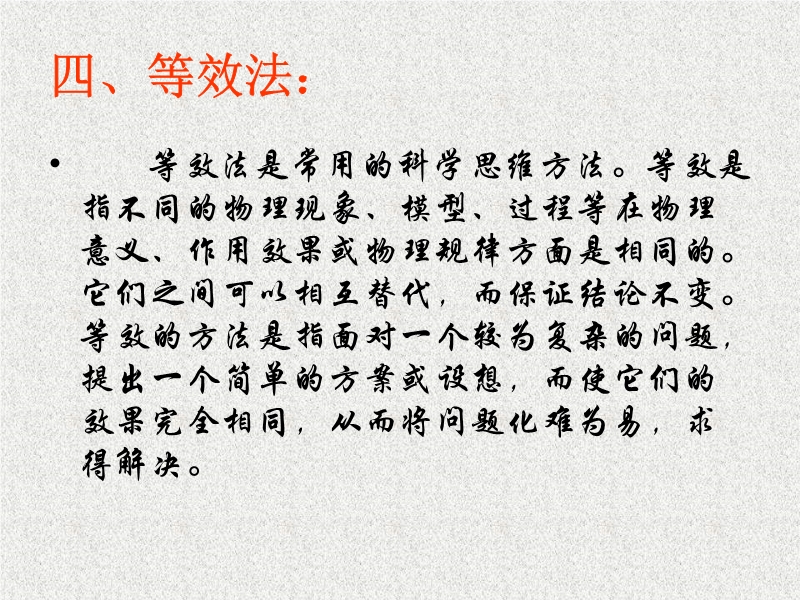 四、等效法：
• 等效法是常用的科学思维方法。等效是
指不同的物理现象、模型、过程等在物理
意义、作用效果或物理规律方面是相同的。
它们之间可以相互替代，而保证结论不变。
等效的方法是指面对一个较为复杂的问题，
提出一个简单的方案或设想，而使它们的
效果完全相同，从而将问题化难为易，求
得解决。